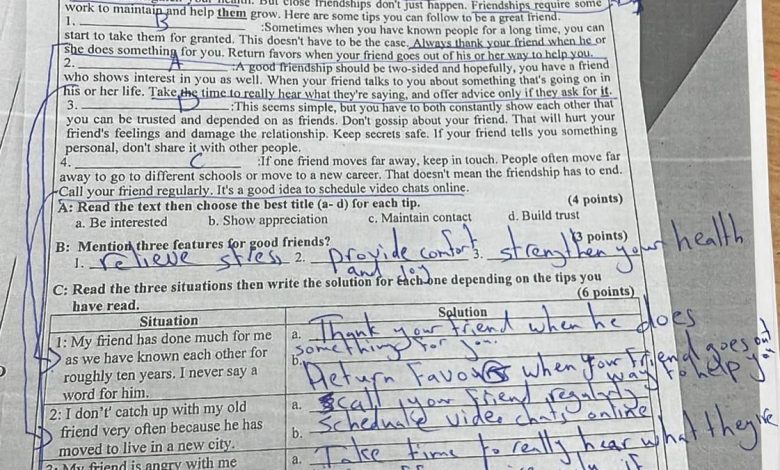 your health. But close friendships don't just happen. Friendships require some
work to maintain and help them grow. Here are some tips you can follow to be a great friend.
1. B :Sometimes when you have known people for a long time, you can
start to take them for granted. This doesn't have to be the case. Always thank your friend when he or
she does something for you. Return favors when your friend goes out of his or her way to help you.
2. A :A good friendship should be two-sided and hopefully, you have a friend
who shows interest in you as well. When your friend talks to you about something that's going on in
his or her life. Take the time to really hear what they're saying, and offer advice only if they ask for it.
3. D :This seems simple, but you have to both constantly show each other that
you can be trusted and depended on as friends. Don't gossip about your friend. That will hurt your
friend's feelings and damage the relationship. Keep secrets safe. If your friend tells you something
personal, don't share it with other people.
4. C :If one friend moves far away, keep in touch. People often move far
away to go to different schools or move to a new career. That doesn't mean the friendship has to end.
Call your friend regularly. It's a good idea to schedule video chats online.
A: Read the text then choose the best title (a- d) for each tip. (4 points)
a. Be interested b. Show appreciation c. Maintain contact d. Build trust
B: Mention three features for good friends? (3 points)
1. relieve stress 2. provide comfort 3. strengthen your health
and joy
C: Read the three situations then write the solution for each one depending on the tips you
have read. (6 points)
Situation Solution
1: My friend has done much for me
as we have known each other for
roughly ten years. I never say a
word for him.
a. Thank your friend when he does
something for you.
b. Return favors when your friend goes out
way to help you
2: I don't' catch up with my old
friend very often because he has
moved to live in a new city.
a. call your friend regularly
b. schedule video chats online
3: My friend is angry with me
a. Take time to really hear what they're